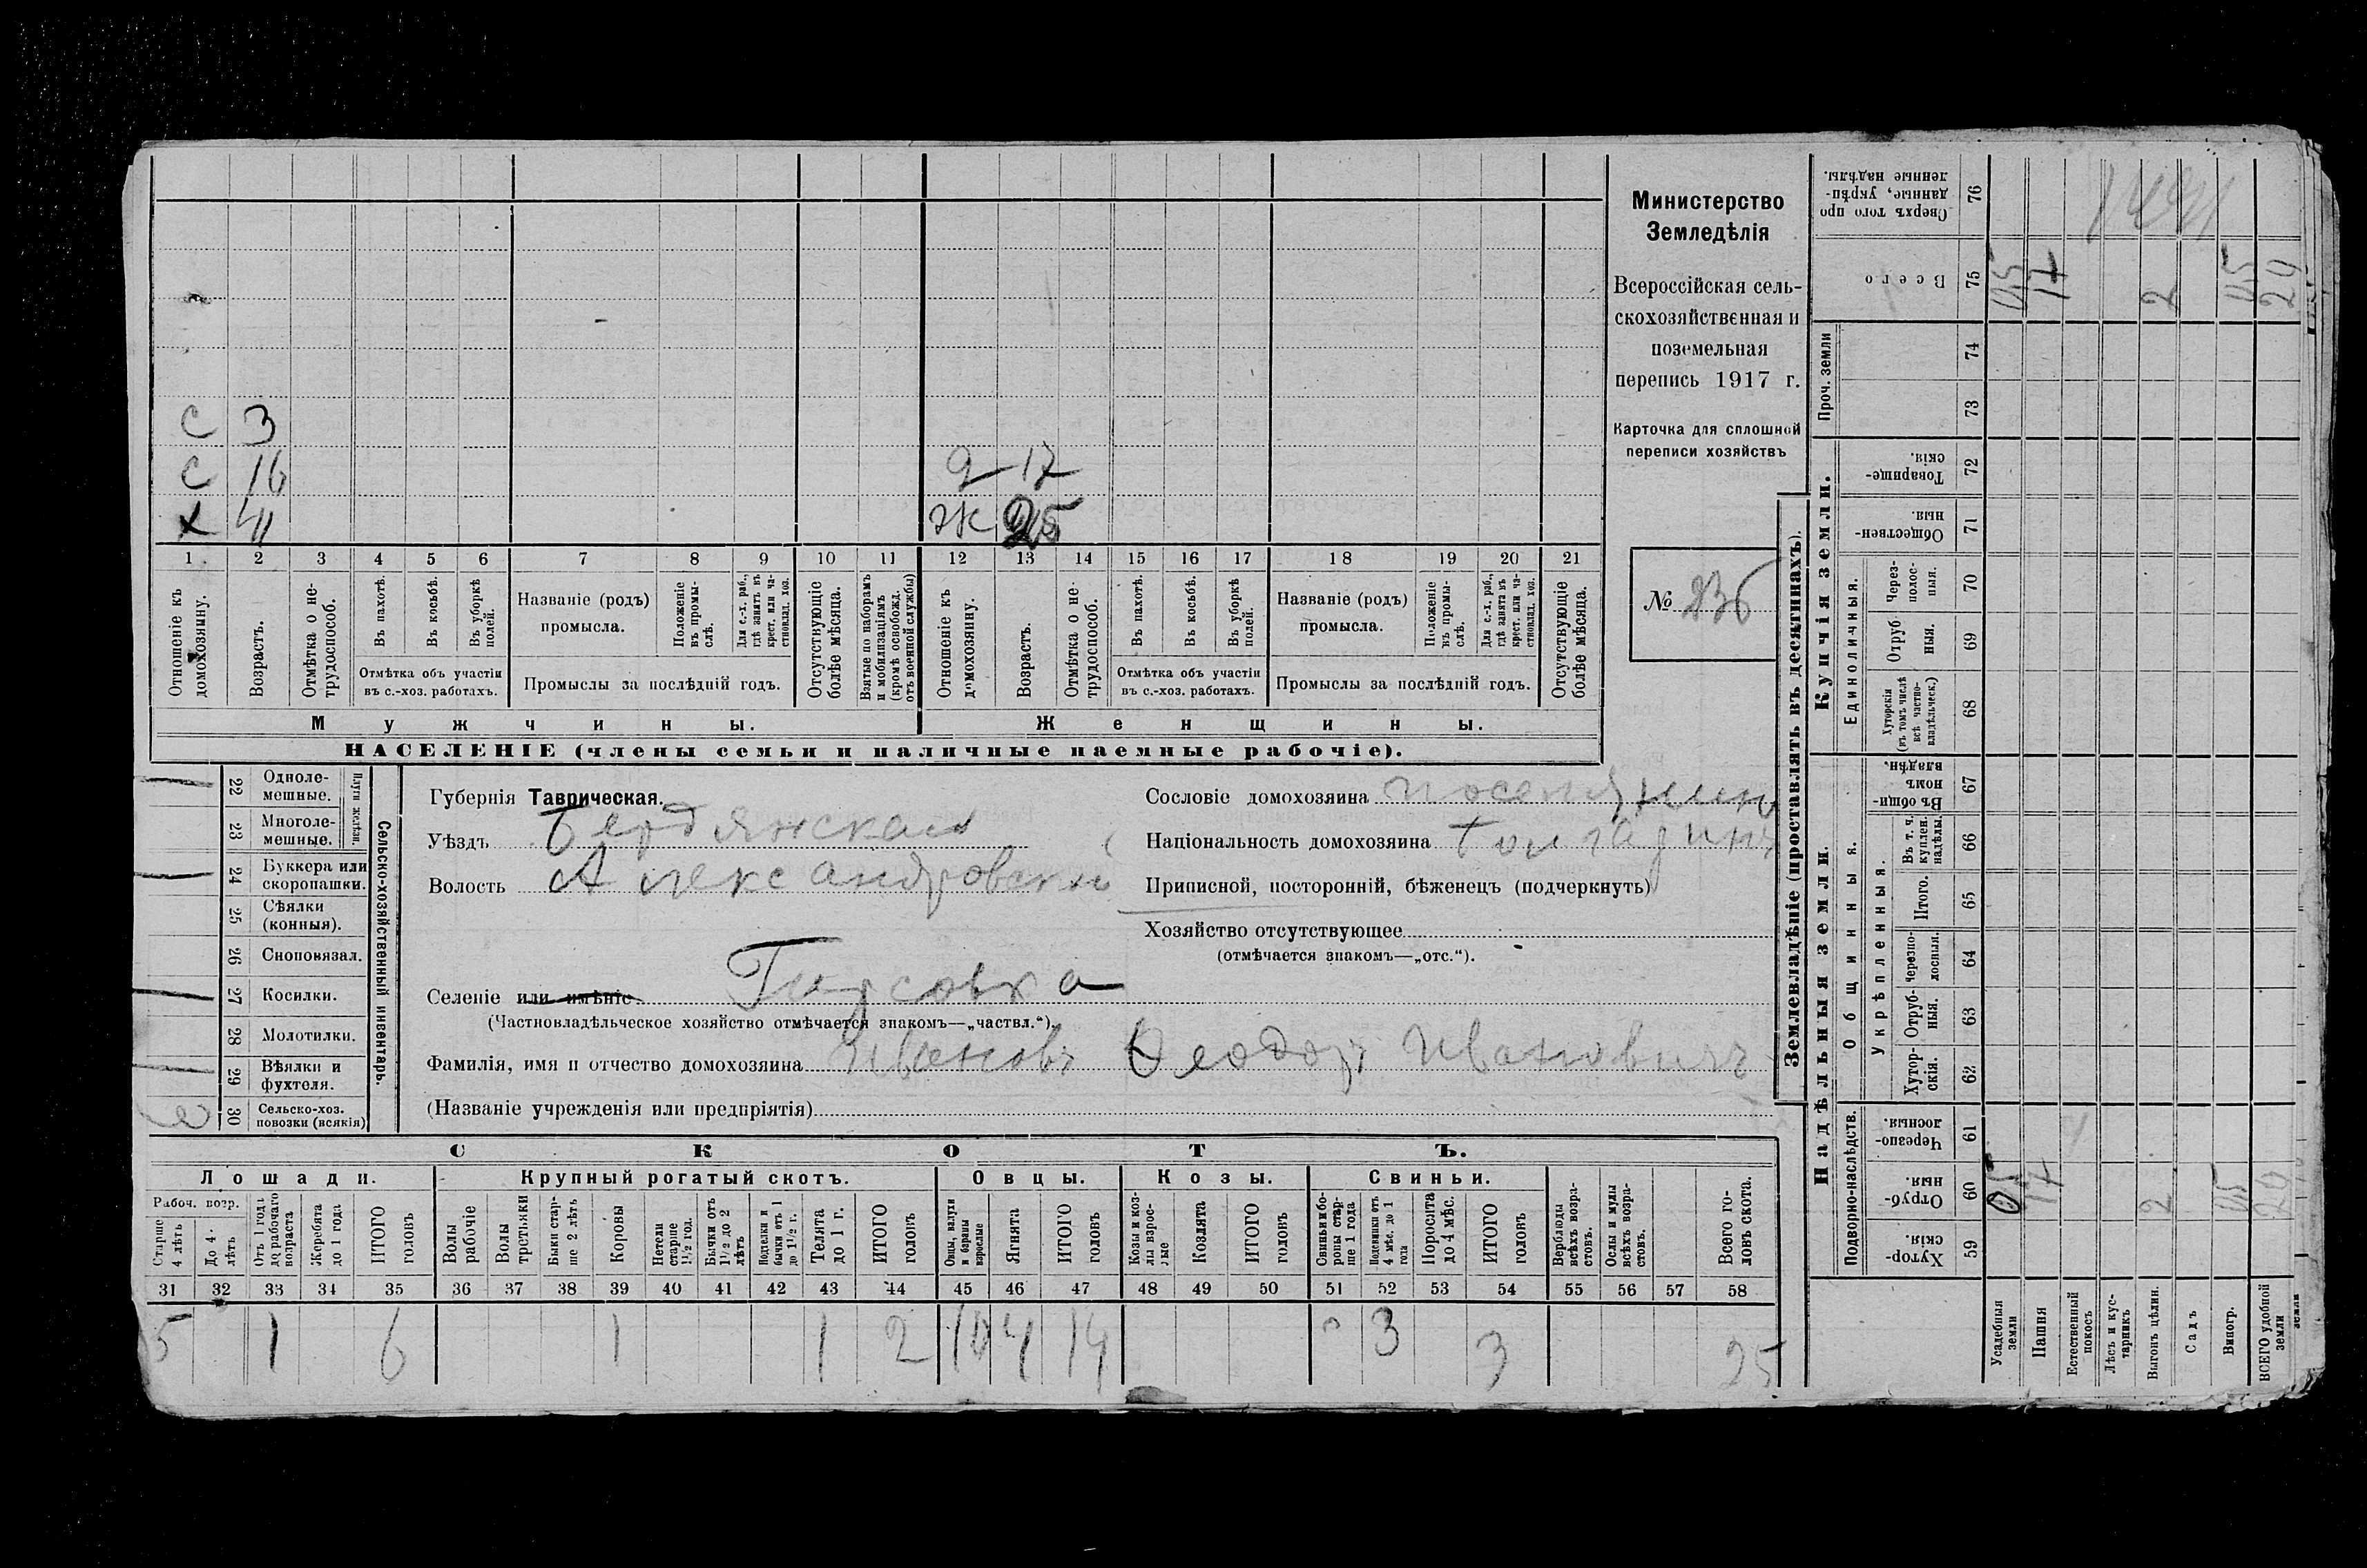 С 3
С 16
Х 41
Д 17
Ж 25
1 2 3 4 5 6 7 8 9 10 11 12 13 14 15 16 17 18 19 20 21
Отношеніе къ домохозяину.
Возрастъ.
Отмѣтка о нетрудоспособ.
Въ пахотѣ.
Въ косьбѣ.
Въ уборкѣ полей.
Отмѣтка объ участіи
въ с.-хоз. работахъ.
Названіе (родъ)
промысла.
Положеніе въ промыслѣ.
Для с.-х. раб., гдѣ занятъ въ крест. или частновлад. хоз.
Промыслы за послѣдній годъ.
Отсутствующіе болѣе мѣсяца.
Взятые по наборамъ и мобилизаціямъ (кромѣ освобожд. отъ военной службы)
Отношеніе къ домохозяину.
Возрастъ.
Отмѣтка о нетрудоспособ.
Въ пахотѣ.
Въ косьбѣ.
Въ уборкѣ полей.
Отмѣтка объ участіи
въ с.-хоз. работахъ.
Названіе (родъ)
промысла.
Положеніе въ промыслѣ.
Для с.-х. раб., гдѣ занята въ крест. или частновлад. хоз.
Промыслы за послѣдній годъ.
Отсутствующіе болѣе мѣсяца.
Мужчины.
Женщины.
НАСЕЛЕНІЕ (члены семьи и наличные наемные рабочіе).
Министерство
Земледѣлія
Всероссійская сель-
скохозяйственная и
поземельная
перепись 1917 г.
Карточка для сплошной
переписи хозяйствъ
№ 236
Сельско-хозяйственный инвентарь.
Плуги желѣзн.
22 Одноле-
мешные.
23 Многоле-
мешные.
24 Буккера или
скоропашки.
25 Сѣялки
(конныя).
26 Сноповязал.
27 Косилки.
28 Молотилки.
29 Вѣялки и
фухтеля.
30 Сельско-хоз.
повозки (всякія)
Губернія Таврическая.
Уѣздъ Бердянская
Волость Александровский
Селеніе или имѣніе Гирсовка
(Частновладѣльческое хозяйство отмѣчается знакомъ—„частвл.“).
Фамилія, имя и отчество домохозяина Ивановъ Ѳеодоръ Ивановичъ
(Названіе учрежденія или предпріятія)
Сословіе домохозяина поселянинъ
Національность домохозяина
Приписной, посторонній, бѣженецъ (подчеркнуть)
Хозяйство отсутствующее
(отмѣчается знакомъ—„отс.“).
СКОТЪ.
Лошади. Крупный рогатый скотъ. Овцы. Козы. Свиньи.
Рабоч. возр.
Старше 4 лѣтъ
До 4 лѣтъ
Отъ 1 года до рабочаго возраста
Жеребята до 1 года
ИТОГО головъ
Волы рабочіе
Волы третьяки
Быки старше 2 лѣтъ
Коровы
Нетели старше 1½ гол.
Бычки отъ 1½ до 2 лѣтъ
Подтелки и бычки отъ 1 до 1½ г.
Телята до 1 г.
ИТОГО головъ
Овцы, валухи и бараны взрослые
Ягнята
ИТОГО головъ
Козы и козлы взрослые
Козлята
ИТОГО головъ
Свиньи и боровы старше 1 года
Подсвинки отъ 4 мѣс. до 1 года
Поросята до 4 мѣс.
ИТОГО головъ
Верблюды всѣхъ возрастовъ.
Ослы и мулы всѣхъ возрастовъ.
Всего головъ скота.
31 32 33 34 35 36 37 38 39 40 41 42 43 44 45 46 47 48 49 50 51 52 53 54 55 56 57 58
5 1 6 1 1 2 10 4 14 3 3 25
Землевладѣніе (проставлять въ десятинахъ).
Купчія земли.
Надѣльныя земли.
Сверхъ того проданные, укрѣпленные надѣлы. 76
Всего 75
Проч. земли
74
73
Товарищескія. 72
Общественныя. 71
Единоличныя.
Черезполосныя. 70
Отрубныя. 69
Хуторскія (въ томъ числѣ всѣ частновладѣльческ.) 68
Общинныя.
Въ общинномъ владѣн. 67
Укрѣпленныя.
Въ т. ч. куплен. надѣлы. 66
Итого. 65
Черезполосныя. 64
Отрубныя. 63
Хуторскія. 62
Подворно-наслѣдств.
Черезполосныя. 61
Отрубныя. 60
Хуторскія. 59
Усадебныя земли
Пашня 17 17
Естественный покосъ
Лѣсъ и кустарникъ
Выгонъ цѣлин. 2 2
Садъ
Виногр.
ВСЕГО удобной земли